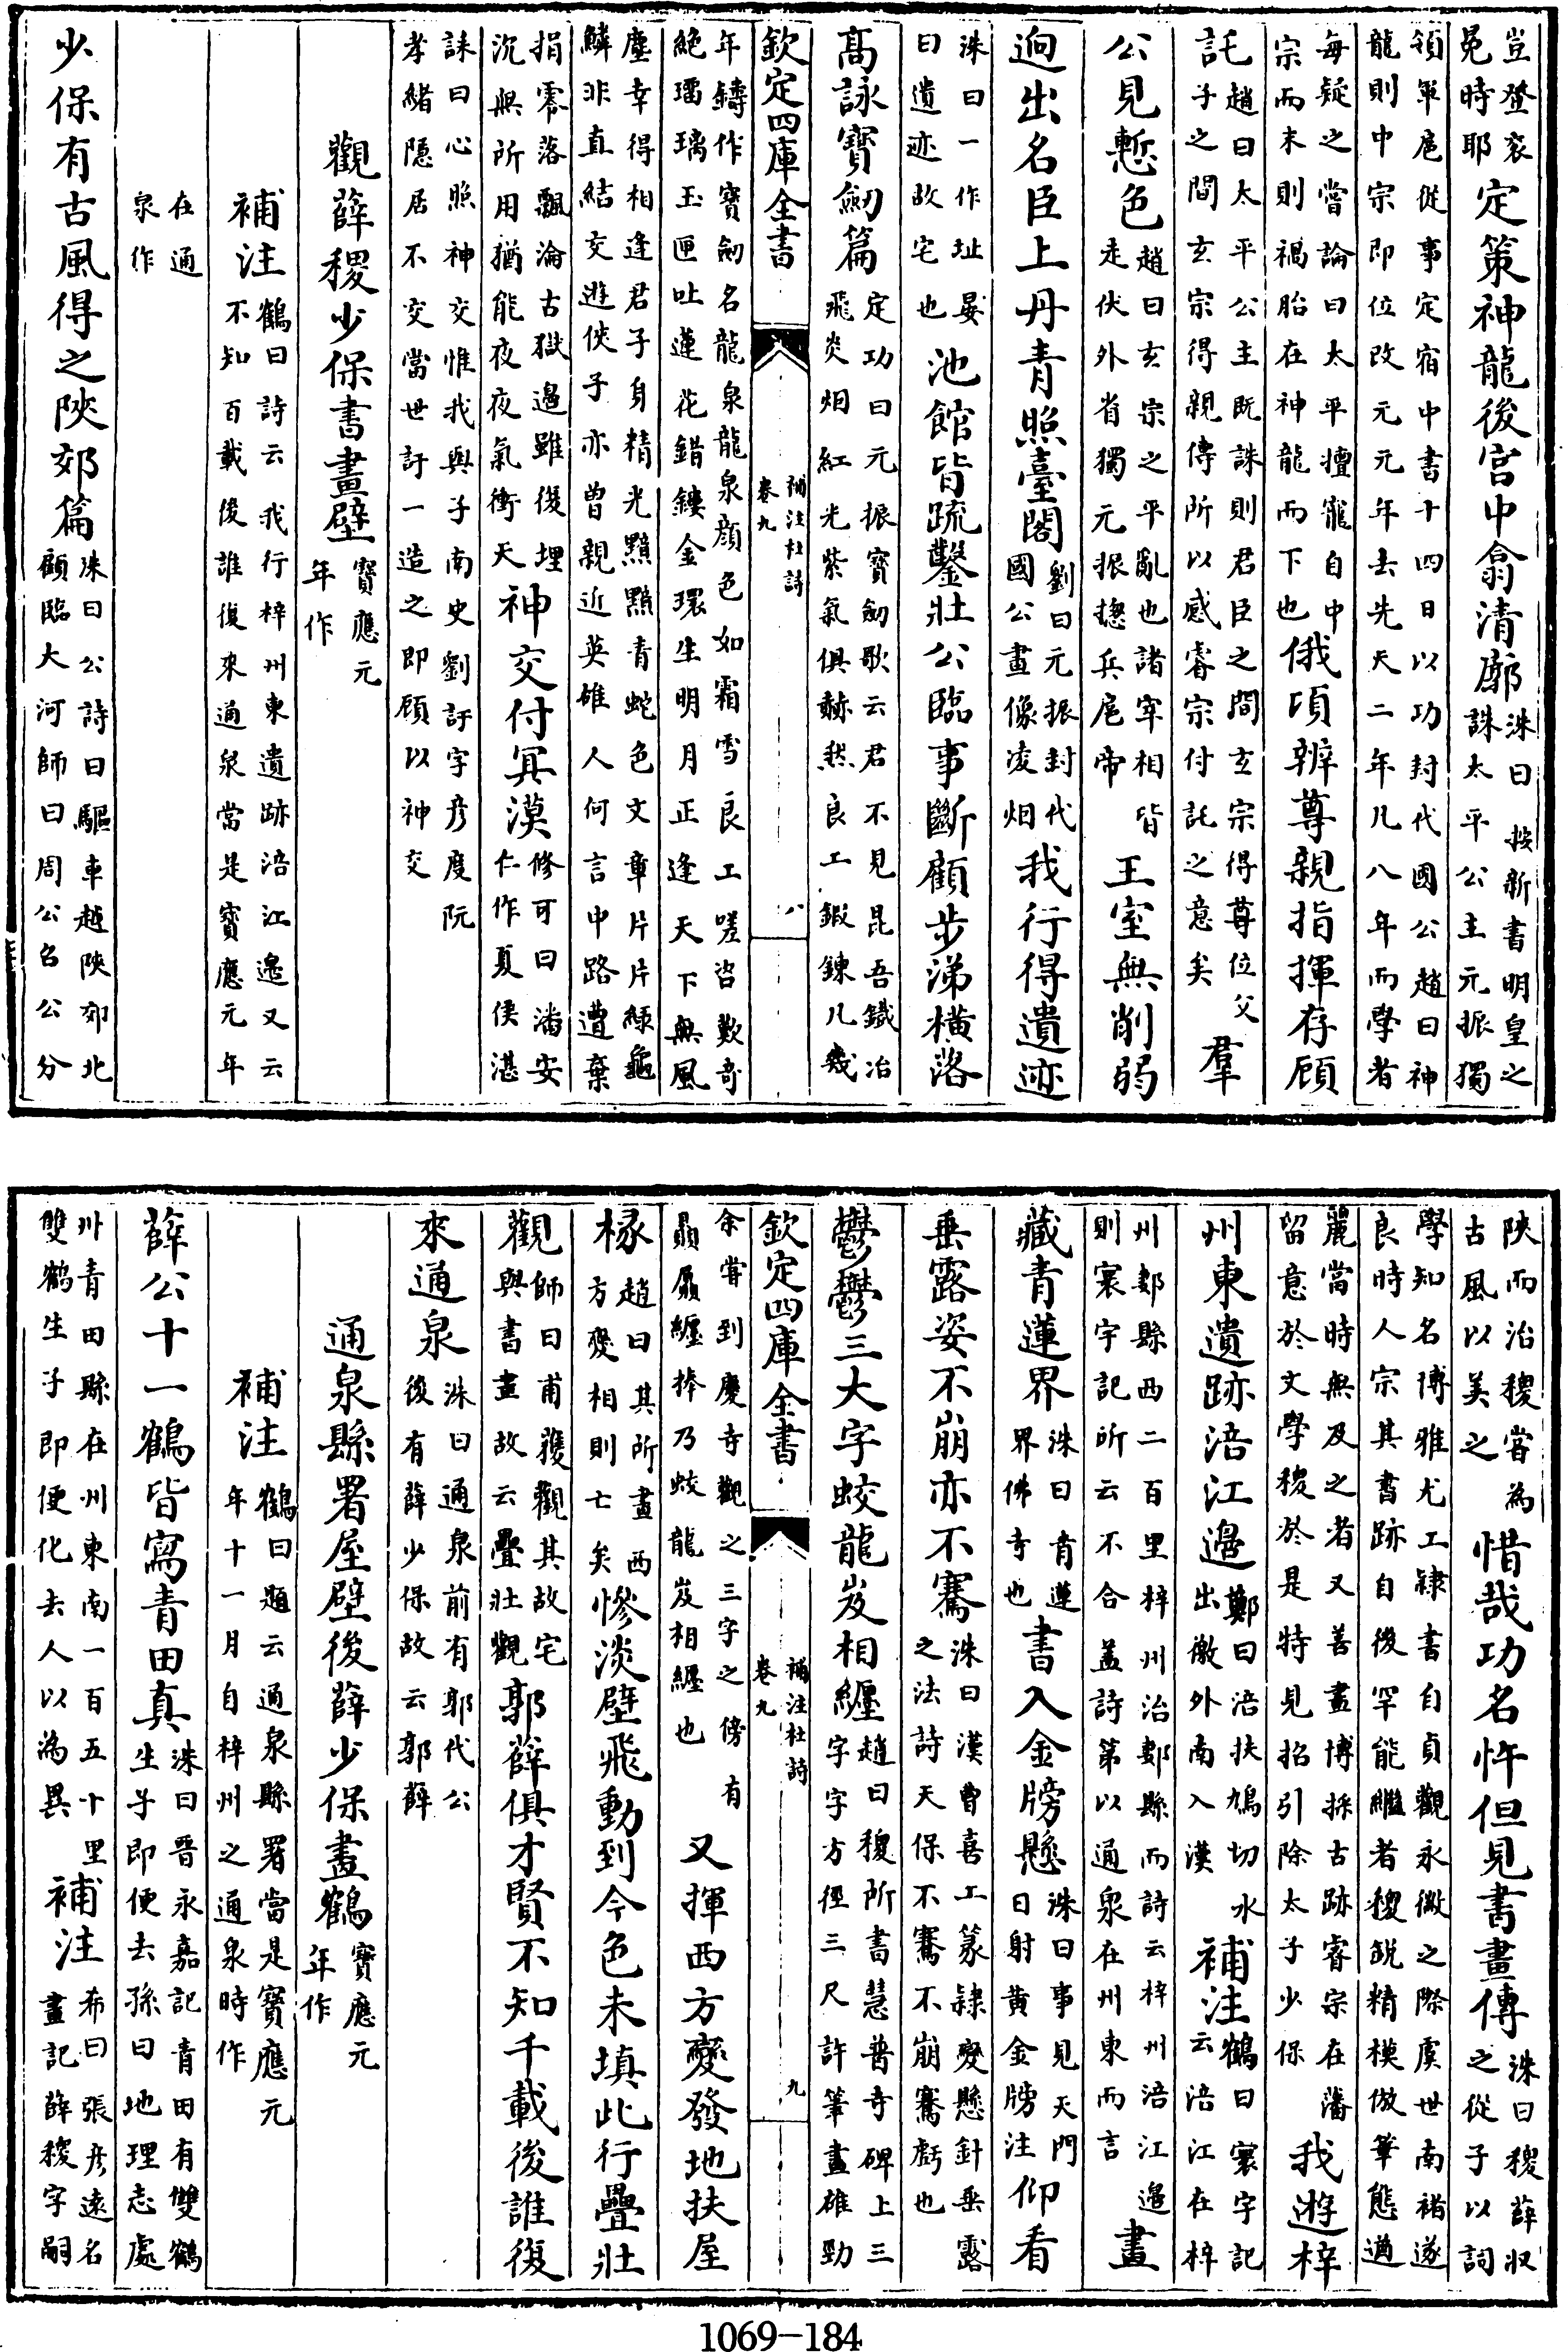 豈登衮冕時耶定策神龍後宫中翕清廓洙曰按新書明皇之誅太平公主元振獨
領軍扈從事定宿中書十四日以功封代國公趙曰神龍則中宗即位改元元年去先天二年凡八年而學者
每疑之當論曰太平擅寵自中宗而末則禍胎在神龍而下也俄頃辨尊親指揮存顧
託趙曰太平公主既誅則君臣之間玄宗得尊位父子之間玄宗得親傳所以感睿宗付託之意矣羣
公見慙色趙曰玄宗之平亂也諸宰相皆走伏外省獨元振摠兵扈帝王室無削弱
迥出名臣上丹青照臺閣劉曰元振封代國公畫像凌烟我行得遺迹
洙曰一作址晏曰遺迹故宅也池館皆疏鑿壯公臨事斷顧步涕横落
髙詠寳劒篇定功曰元振寳劒歌云君不見昆吾鐵冶飛炎烟紅光紫氣俱赫然良工鍜鍊凡幾
欽定四庫全書 補注杜詩 卷九 八
年鑄作寳劒名龍泉龍泉顔色如霜雪良工嗟咨歎奇絶瑠璃玉匣吐蓮花錯鏤金環生明月正逢天下無風
塵幸得相逢君子身精光黯黯青蛇色文章片片緑龜鱗非直結交遊俠子亦曽親近英雄人何言中路遭棄
捐零落飄淪古獄邊雖復埋沉無所用猶能夜夜氣衝天神交付冥漠修可曰潘安仁作夏侯湛
誄曰心照神交惟我與子南史劉訏字彦度阮孝緒隠居不交當世訏一造之即顧以神交
觀薛稷少保書畫壁寳應元年作
補注鶴曰詩云我行梓州東遺跡涪江邊又云不知百載後誰復來通泉當是寳應元年
在通泉作
少保有古風得之陜郊篇洙曰公詩曰驅車越陜郊北顧臨大河師曰周公召公分
陜而治稷嘗為古風以美之惜哉功名忤但見書畫傳洙曰稷薛収之從子以詞
學知名博雅尤工隷書自貞觀永徽之際虞世南褚遂良時人宗其書跡自後罕能繼者稷鋭精模倣筆態遒
麗當時無及之者又善畫博採古跡睿宗在藩留意於文學稷於是特見招引除太子少保我遊梓
州東遺跡涪江邊鄭曰涪扶鳩切水出徼外南入漢補注鶴曰寰宇記云涪江在梓
州郪縣西二百里梓州治郪縣而詩云梓州涪江邊則寰宇記所云不合葢詩第以通泉在州東而言畫
藏青蓮界洙曰青蓮界佛寺也書入金牓懸洙曰事見天門日射黄金牓注仰看
垂露姿不崩亦不騫洙曰漢曹喜工篆隷變懸針垂露之法詩天保不騫不崩騫虧也
鬱鬱三大字蛟龍岌相纒趙曰稷所書慧普寺碑上三字字方徑三尺許筆畫雄勁
欽定四庫全書 補注杜詩 卷九 九
余嘗到慶寺觀之三字之傍有贔屭纒捧乃蛟龍岌相纒也又揮西方變發地扶屋
椽趙曰其所畫西方變相則亡矣慘淡壁飛動到今色未填此行疊壯
觀師曰甫獲觀其故宅與書畫故云疊壯觀郭薛俱才賢不知千載後誰復
來通泉洙曰通泉前有郭代公後有薛少保故云郭薛
通泉縣署屋壁後薛少保畫鶴寳應元年作
補注鶴曰題云通泉縣署當是寳應元年十一月自梓州之通泉時作
薛公十一鶴皆寫青田真洙曰晋永嘉記青田有雙鶴生子即便去孫曰地理志處
州青田縣在州東南一百五十里雙鶴生子即便化去人以為異補注希曰張彦遠名畫記薛稷字嗣
1069-184